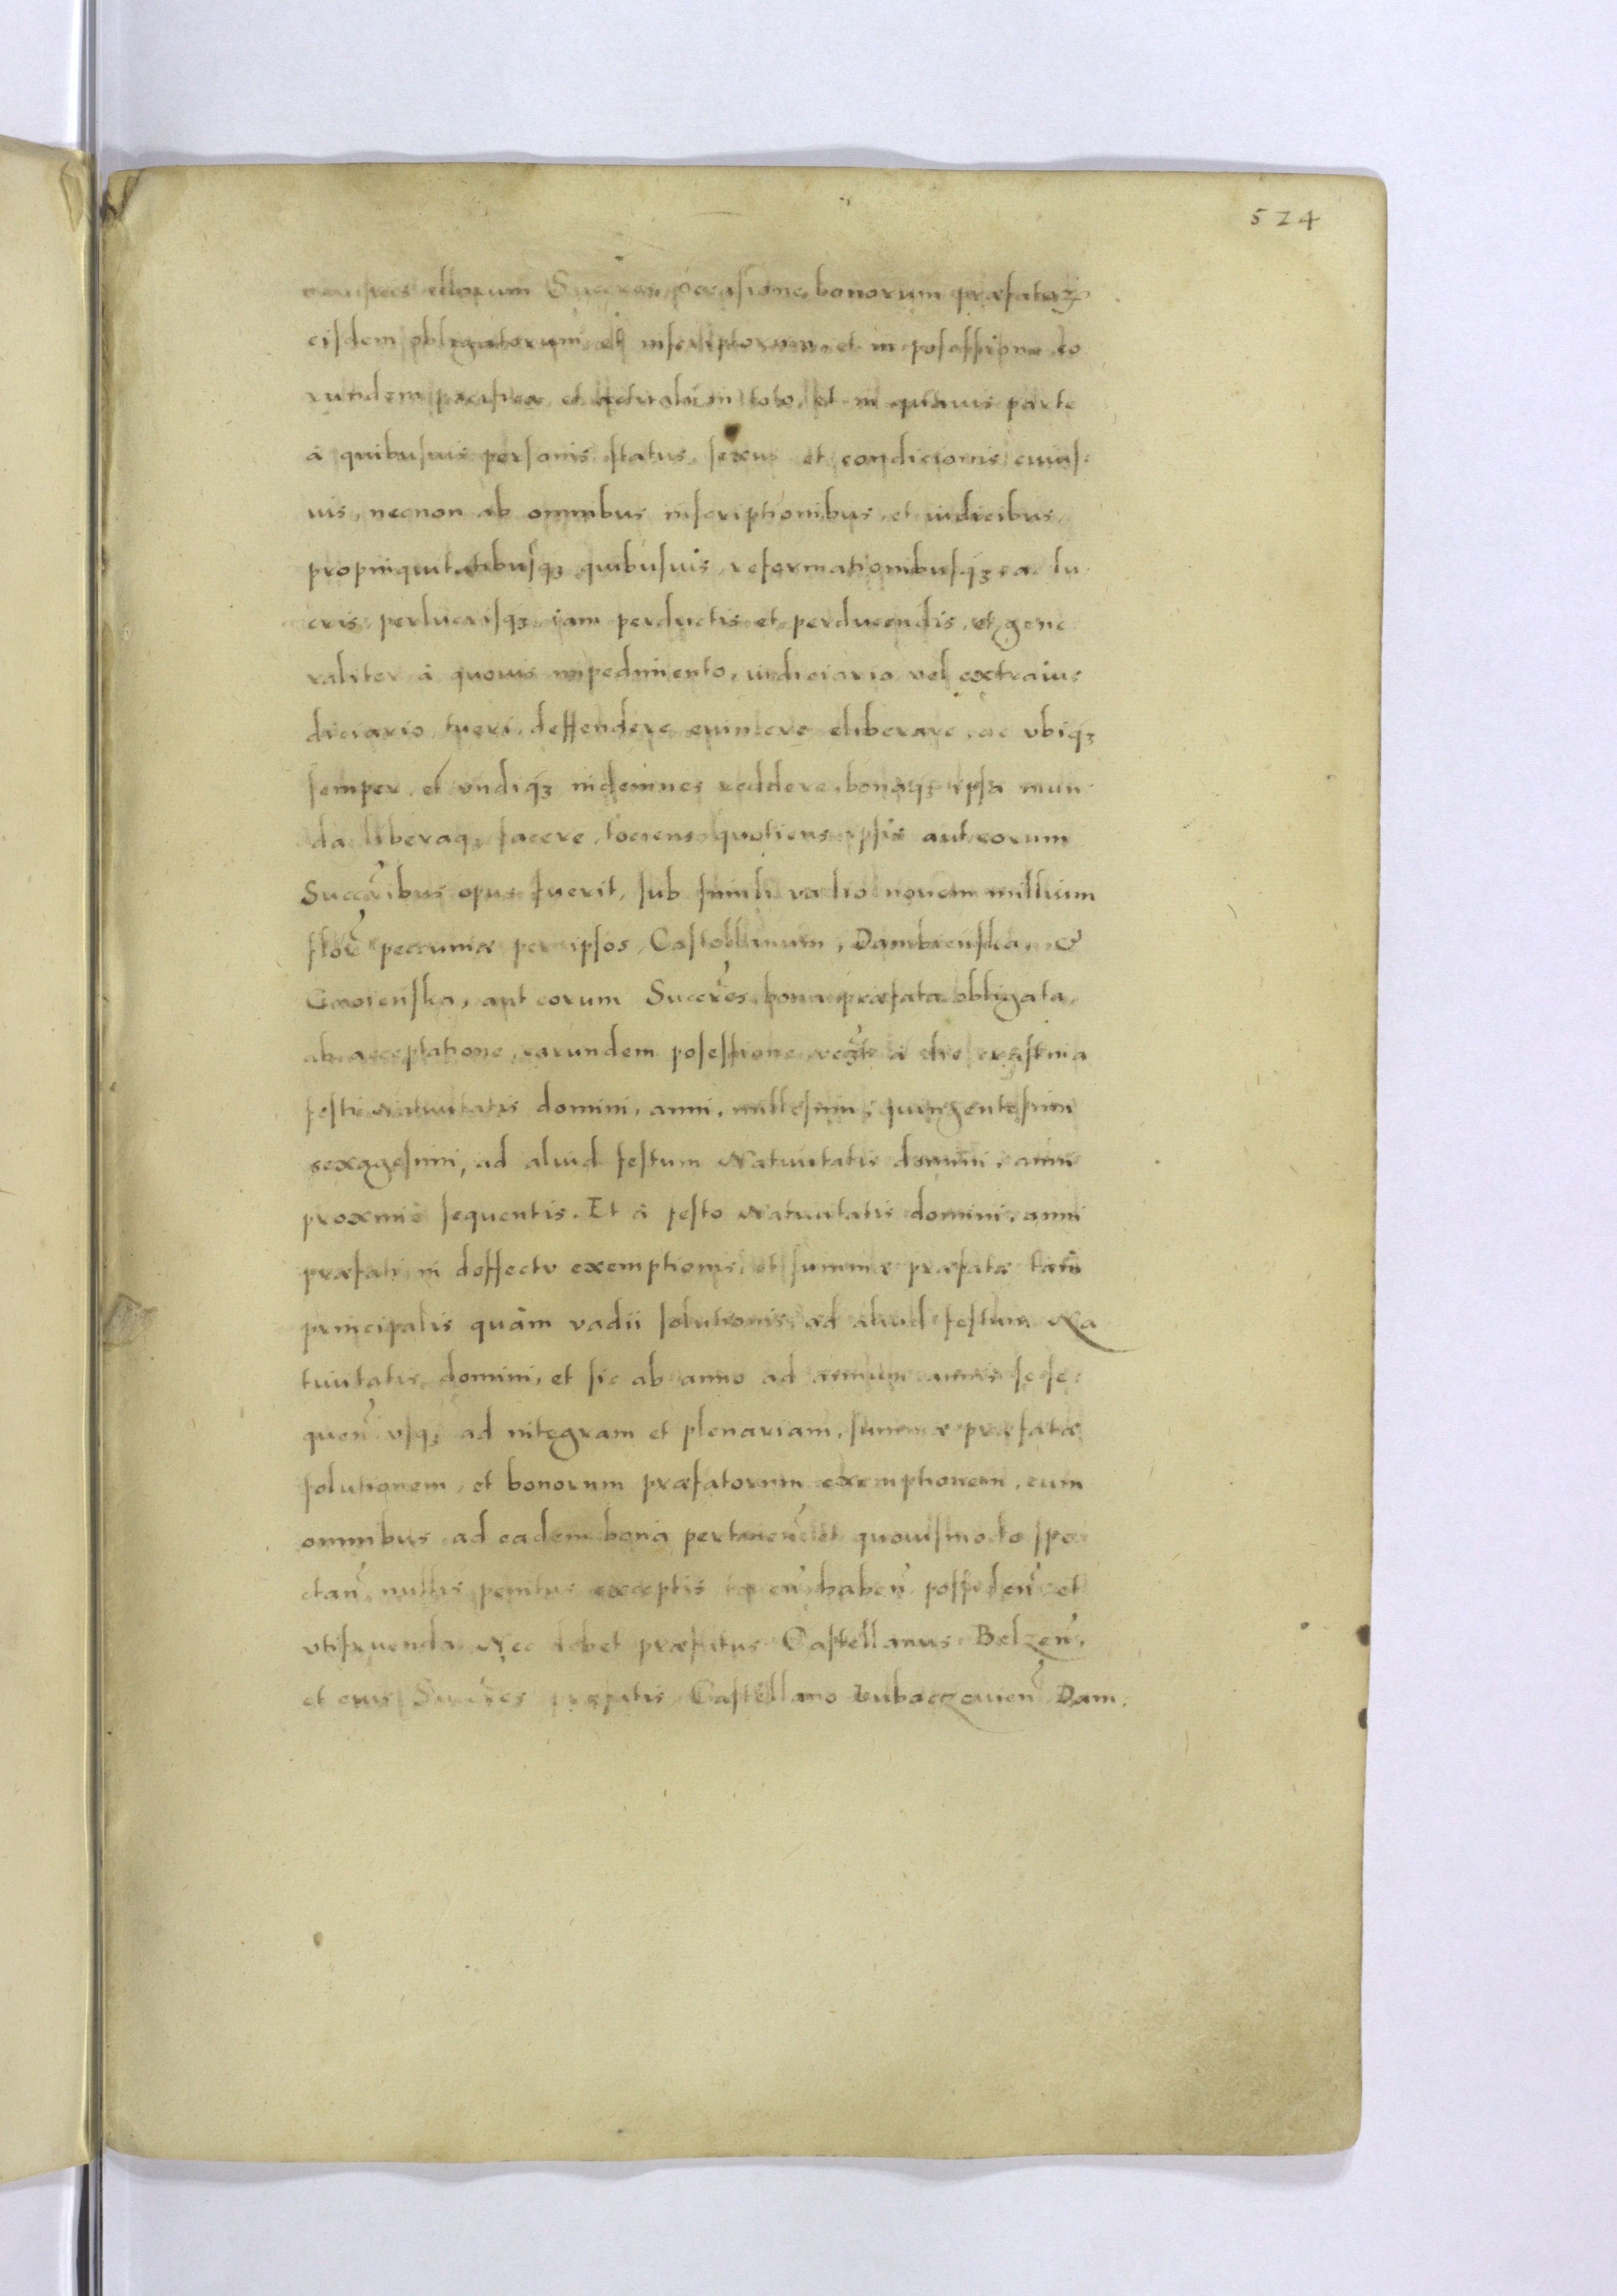 524
illorum Succren̄ occasione bonorum præfatoꝝ
eisdem obligatorum et inscriptorum, et in posessione eo
rundem pacifica et actuali in toto, et in quauis parte
à quibusuis personis status, sexus et condicionis cuius-
uis, necnon ab omnibus inscriptionibus, et iudicibus,
propinquitatibusqꝫ quibusuis, reformationibusqꝫ ac lu
cris, perlucrisqꝫ iam perductis et perducendis, et gene
raliter à quouis impedimento, iudiciario vel extraiu-
diciario tueri, deffendere euincere eliberare, ac vbiqꝫ
semper, et vndiqꝫ indemnes reddere, bonaqꝫ ipsa mun
da liberaqꝫ facere, tociens quotiens ipsis aut eorum
Succr̃ibus opus fuerit, sub simili vadio nouem millium
flor̃ pecuniæ per ipsos, Castellanum, Dambienska, &
aut eorum Succr̃es, bona præfata obligata,
ab acceptatione, earundem posessione à die crastina
festi Natiuitatis domini, anni, millesimi, quingentesimi
sexagesimi, ad aliud festum Natiuitatis domini, anni
proximè sequentis. Et à festo Natiuitatis domini, anni
præfati in deffectu exemptionis, et summæ præfatæ tam̃
principalis quàm vadii solutionis, ad aliud festum Na
tiuitatis domini, et sic ab anno ad annum annis se se-
quen̄ vsqꝫ ad integram et plenariam, summæ præfatæ
solutionem, et bonorum præfatorum exemptionem, cum
omnibus ad eadem bona pertinen̄ et quouismodo spe
ctan̄ nullis penitus exceptis ten̄ haben̄ possiden̄ et
vtifruenda. Nec debet præfatus Castellanus Belzen̄,
et eius Succr̃es præfatis Castellano Lubaczouien̄ Dam-